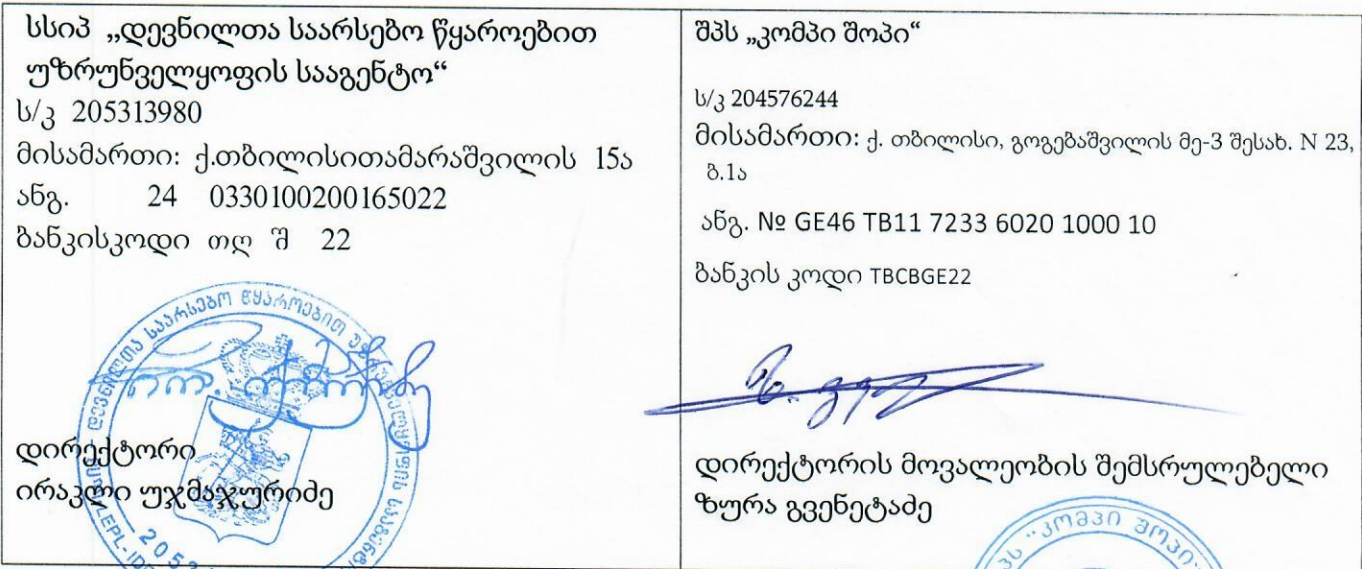 სსიპ „დევნილთა საარსებო წყაროებით
უზრუნველყოფის სააგენტო“
ს/კ 205313980
მისამართი: ქ.თბილისითამარაშვილის 15ა
ანგ. 24 0330100200165022
ბანკისკოდი თღ შ 22
დევნილთა საარსებო წყაროებით
დირექტორი
ირაკლი უჯმაჯურიძე
შპს „კომპი შოპი“
ს/კ 204576244
მისამართი: ქ. თბილისი, გოგებაშვილის მე-3 შესახ. N 23,
ბ.1ა
ანგ. № GE46 TB11 7233 6020 1000 10
ბანკის კოდი TBCBGE22
დირექტორის მოვალეობის შემსრულებელი
ზურა გვენეტაძე
"კომპი შოპი"